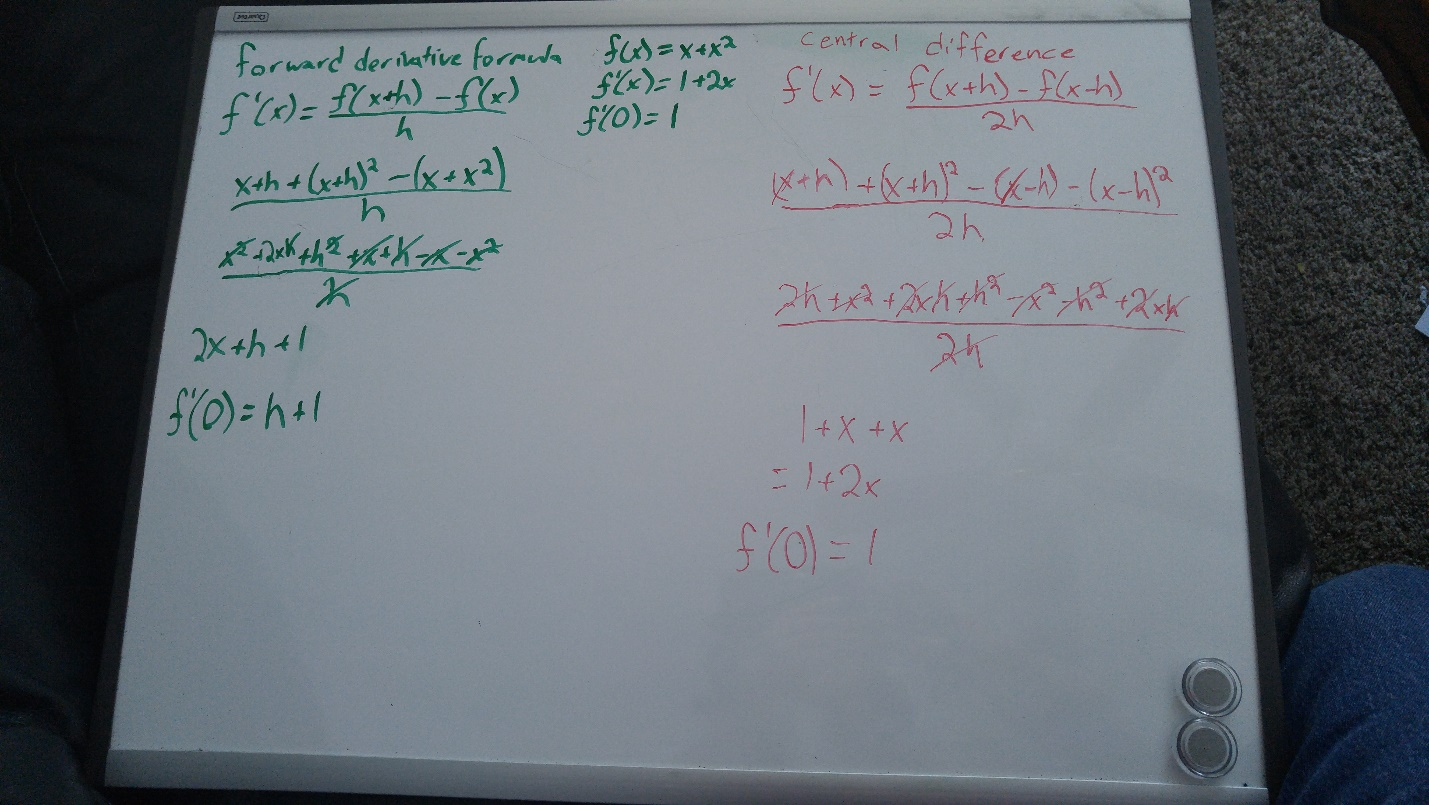 Quartet
forward derivative formula
f'(x) = f(x+h) - f(x) / h
x+h + (x+h)² - (x + x²) / h
x² + 2xh + h² + x + h - x - x² / h
2x + h + 1
f'(0) = h + 1
f(x) = x + x²
f'(x) = 1 + 2x
f'(0) = 1
central difference
f'(x) = f(x+h) - f(x-h) / 2h
(x+h) + (x+h)² - (x-h) - (x-h)² / 2h
2h + x² + 2xh + h² - x² - h² + 2xh / 2h
1 + x + x
= 1 + 2x
f'(0) = 1